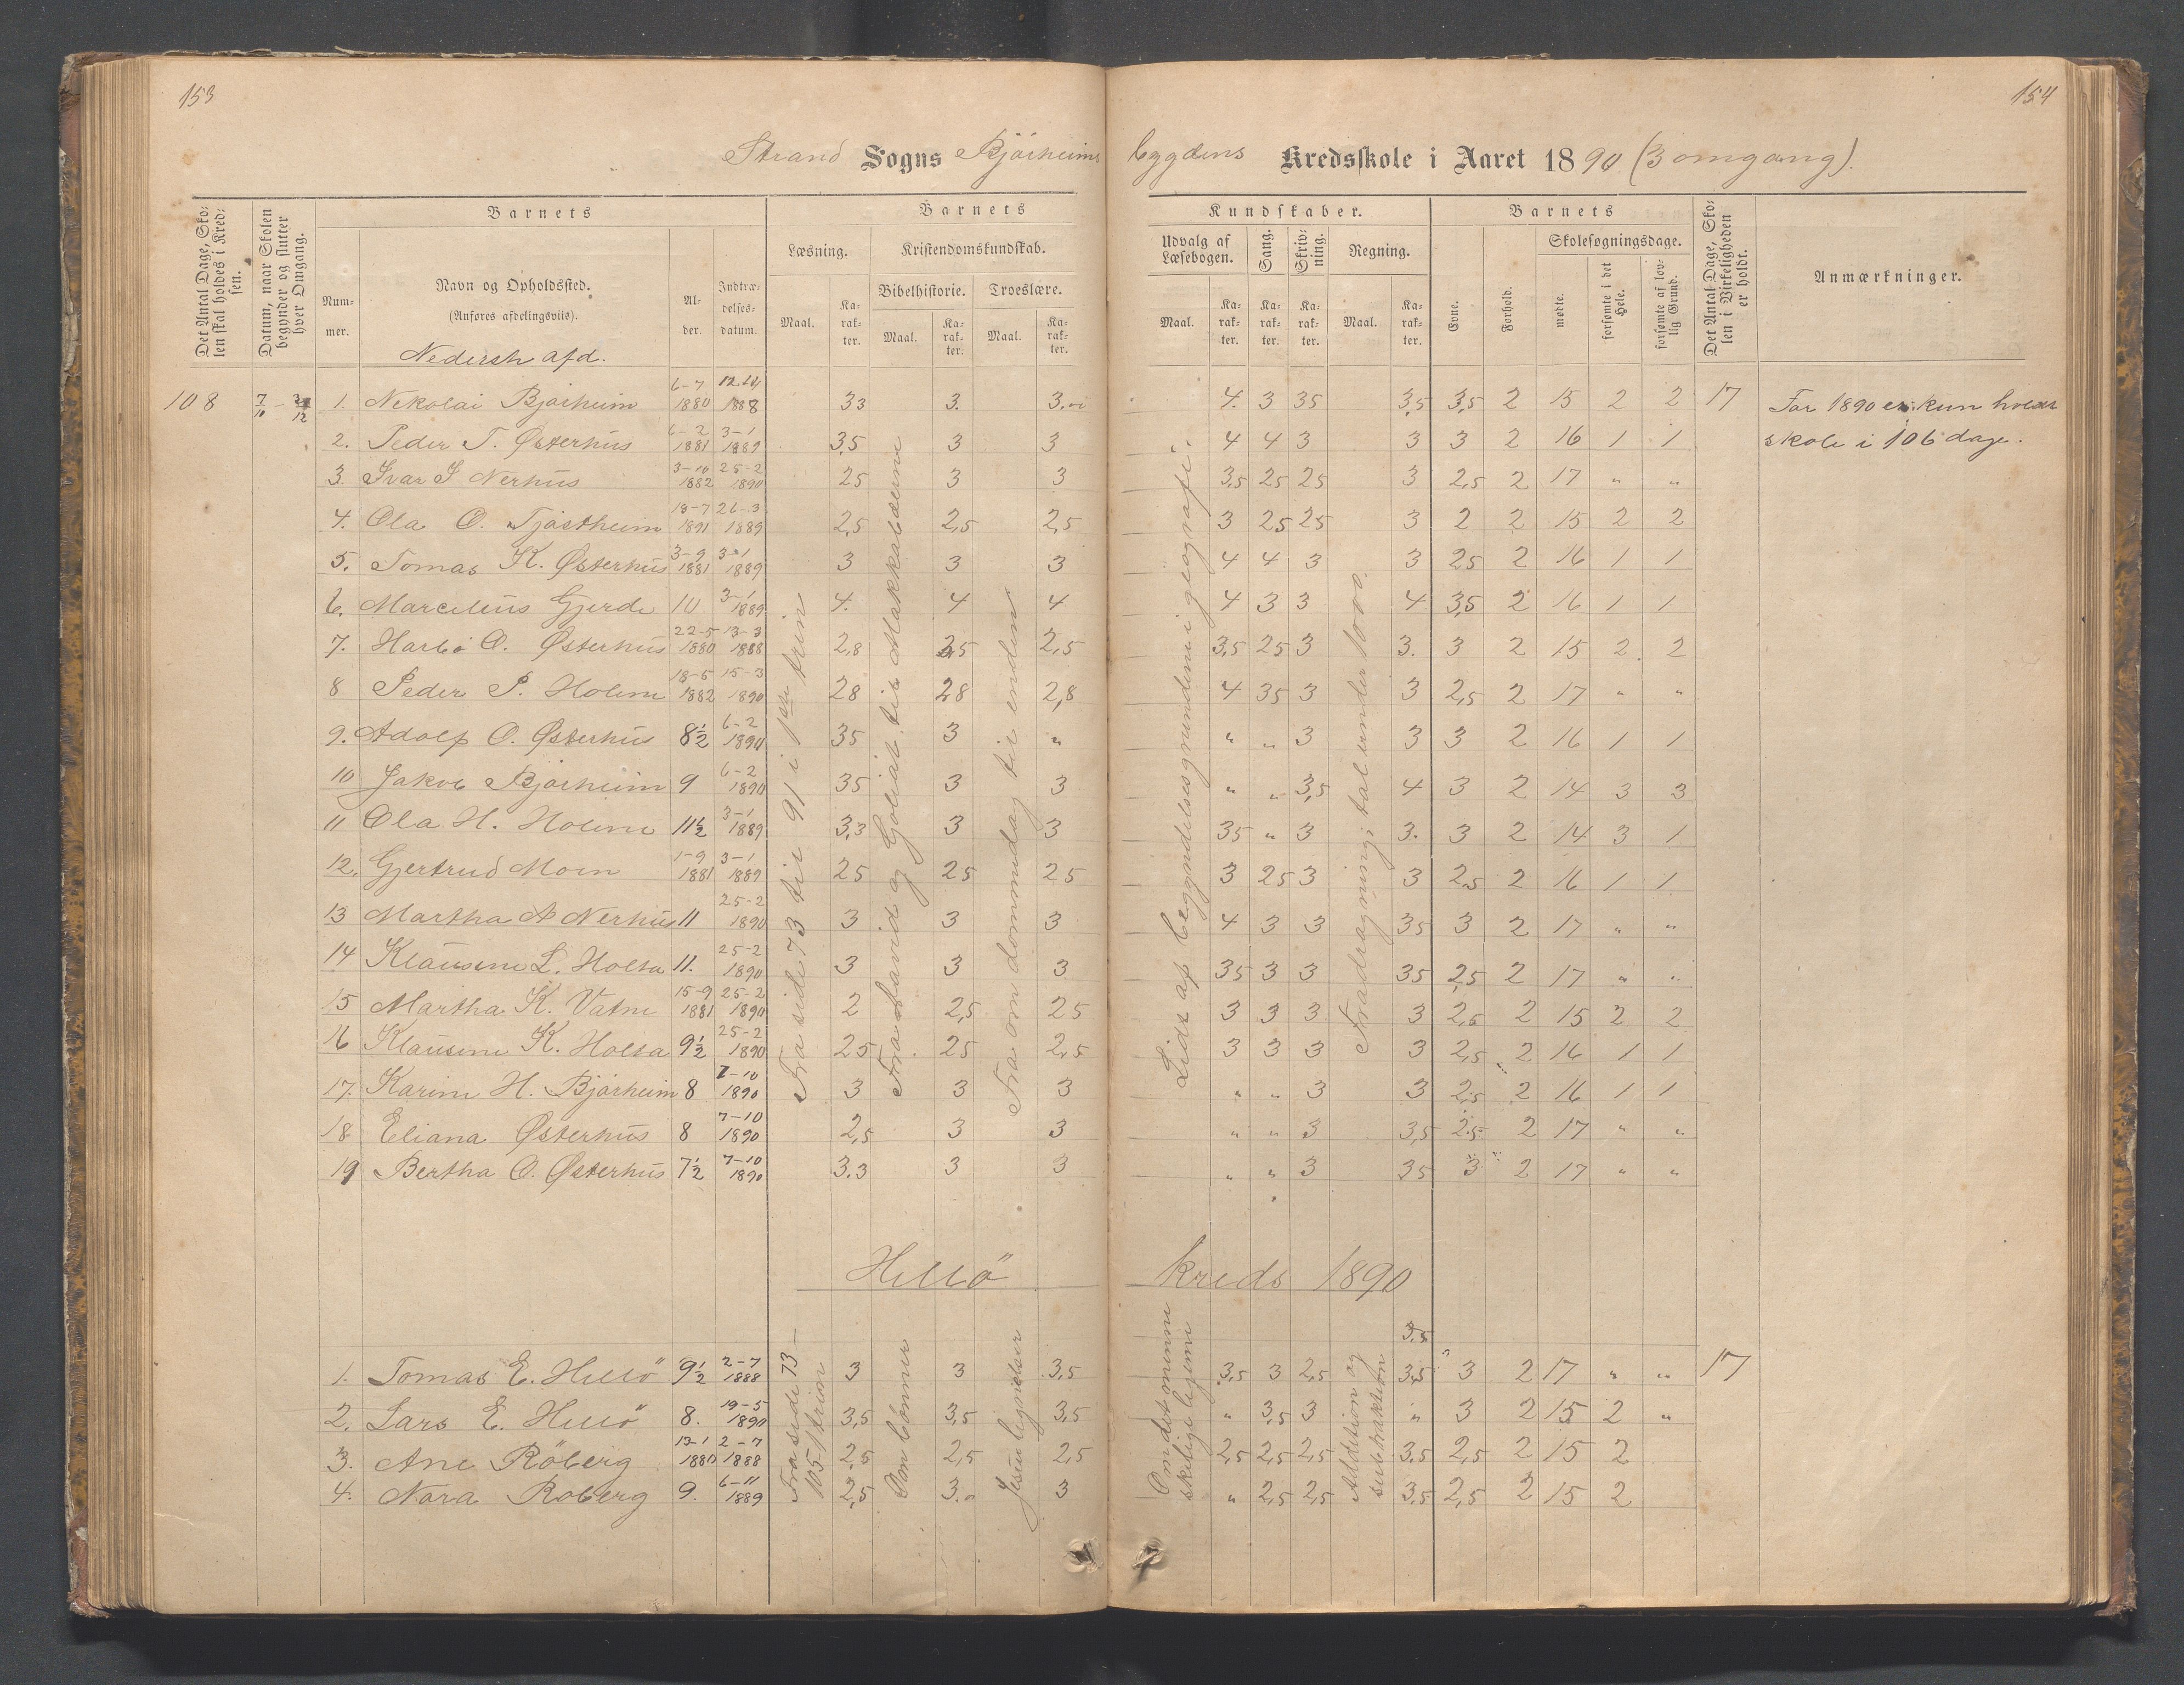 153
154
Strand Sogns Bjørheims
bygdens Kredsskole i Aaret 1890 (3 omgang).
Det Antal Dage, Skolen skal holdes i Kredsen.
Datum, naar Skolen begynder og slutter hver Omgang.
Barnets
Nummer.
Navn og Opholdssted.
(Anføres afdelingsviis).
Nederste afd.
Alder.
Indtrædelsesdatum.
Barnets
Læsning.
Maal.
Karakter.
Kristendomskundskab.
Bibelhistorie.
Maal.
Karakter.
Troeslære.
Maal.
Karakter.
Kundskaber.
Udvalg af Læsebogen.
Maal.
Karakter.
Sang.
Karakter.
Skrivning.
Karakter.
Regning.
Maal.
Karakter.
Barnets
Evne.
Forhold.
Skolesøgningsdage.
mødte.
forsømte i det Hele.
forsømte af lovlig Grund.
Det Antal Dage, Skolen i Virkeligheden er holdt.
Anmærkninger.
108 1. Nekolai Bjørheim 6-7 1880 1888 33 3. 3. 4. 3 35 3,5 3,5 2 15 2 2 17 For 1890 er kun holdt
2. Peder T. Østerhus 6-2 1881 3-1 1889 3,5 3 3 4 4 3 3 3 2 16 1 1 skole i 106 dage.
3. Ivar I Nerhus 3-10 1882 25-2 1890 25 3 3 3,5 25 25 3 2,5 2 17 " "
4. Ola O. Tjøstheim 18-7 1891 26-3 1889 2,5 2,5 2,5 3 25 25 3 2 2 15 2 2
5. Tomas K. Østerhus 3-9 1881 3-1 1889 3 3 3 4 4 3 3 25 2 16 1 1
6. Marcelius Gjerde 10 3-1 1889 4. 4 4 4 3 3 4 3,5 2 16 1 1
7. Harbo O. Østerhus 22-5 1880 13-3 1888 2,8 2,5 2,5 3,5 25 3 3. 3 2 15 2 2
8 Peder P. Holme 18-5 1882 15-3 1890 28 28 2,8 4 35 3 3 2,5 2 17 " "
9. Adolf O. Østerhus 8½ 6-2 1890 35 3 " " " 3 3 3 2 16 1 1
10 Jakob Bjørheim 9 6-2 1890 35 3 3 " " 3,5 4 3 2 14 3 3
11 Ola H. Holme 11½ 3-1 1889 3,3 3 3 35 " 3 3. 3 2 14 3 1
12. Gjertrud Moen 1-9 1881 3-1 1889 25 25 25 3 25 3 3 2,5 2 16 1 1
13 Martha A Nerhus 11 25-2 1890 3 3 3 4 3 3 35 3 2 17 " "
14 Klausine L. Holta 11. 25-2 1890 3 3 3 35 3 3 35 2,5 2 17 " "
15 Martha K. Vatne 15-9 1881 25-2 1890 2 2,5 25 3 3 3 3 2,5 2 15 2 2
16 Klausine K. Holta 9½ 25-2 1890 25 25 2,5 3 3 3 3 2,5 2 16 1 1
17. Karine H. Bjørheim 8 7-10 1890 3 3 3 " " 3 3 2,5 2 16 1 1
18 Eliana Østerhus 8 7-10 1890 2,5 3 3 " " 3 3,5 2,5 2 17 " "
19 Bertha O. Østerhus 7½ 7-10 1890 3.3 3 3 " " 3 35 3 2 17 " "
Fra side 73 til 91 i 1ste trin
Fra David og Goliat til Makkabæerne
Fra om dommedag til enden
Lidt af begyndelsesgrundene i geografi.
Fradragning; tal under 1000.
Hellö kreds 1890
3,5
1. Tomas E. Hellö 9½ 2-7 1888 3 3 3,5 3,5 3 2,5 3,5 3 2 17 " " 17
2. Lars E. Hellö 8. 19-5 1890 3,5 3,5 3,5 " 3,5 3 " 3 2 15 2 "
3. Ane Röberg 13-1 1880 2-7 1888 2,5 2,5 2,5 2,5 2,5 2,5 3,5 2,5 2 15 2
4. Nora Roberg 9. 6-11 1889 2,5 3. 3 " 2,5 2,5 3,5 2,5 2 15 2
Fra side 73 – 105 1 trin
Om bönner
Jesu lignelser
Om det menneskelige legeme
Addition og subtraktion